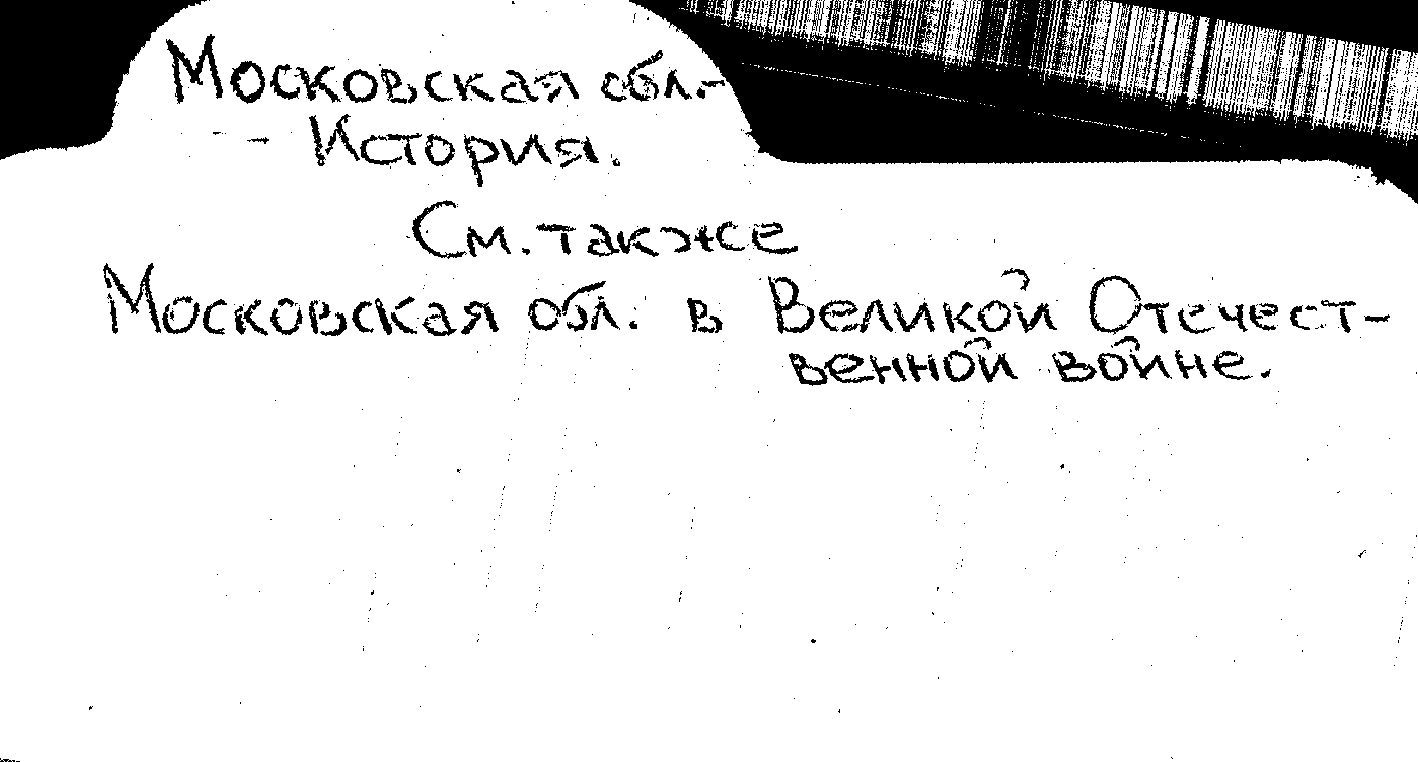 Московская обл.-
- История.
См. также
Московская обл. в Великой Отечест-
венной войне.